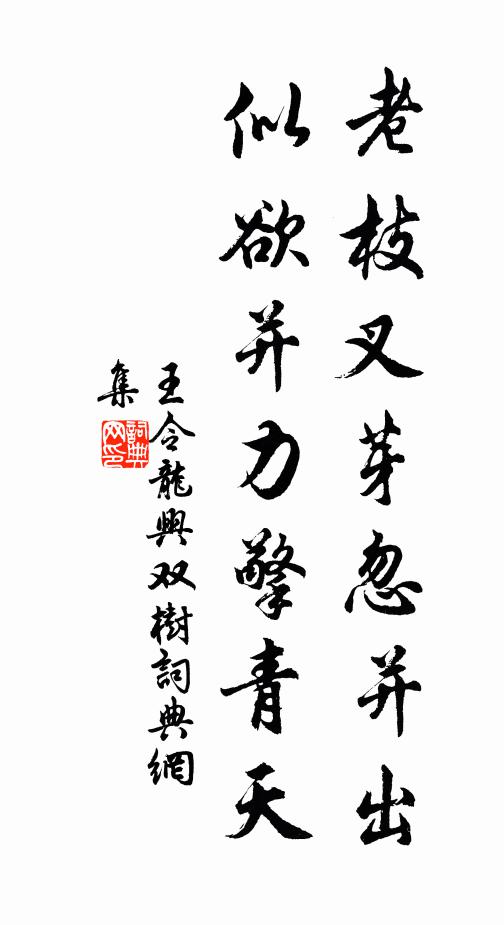 老枝叉芽忽并出
似欲并力擎青天
王令龍興双樹詞典網
集
詞典
网印